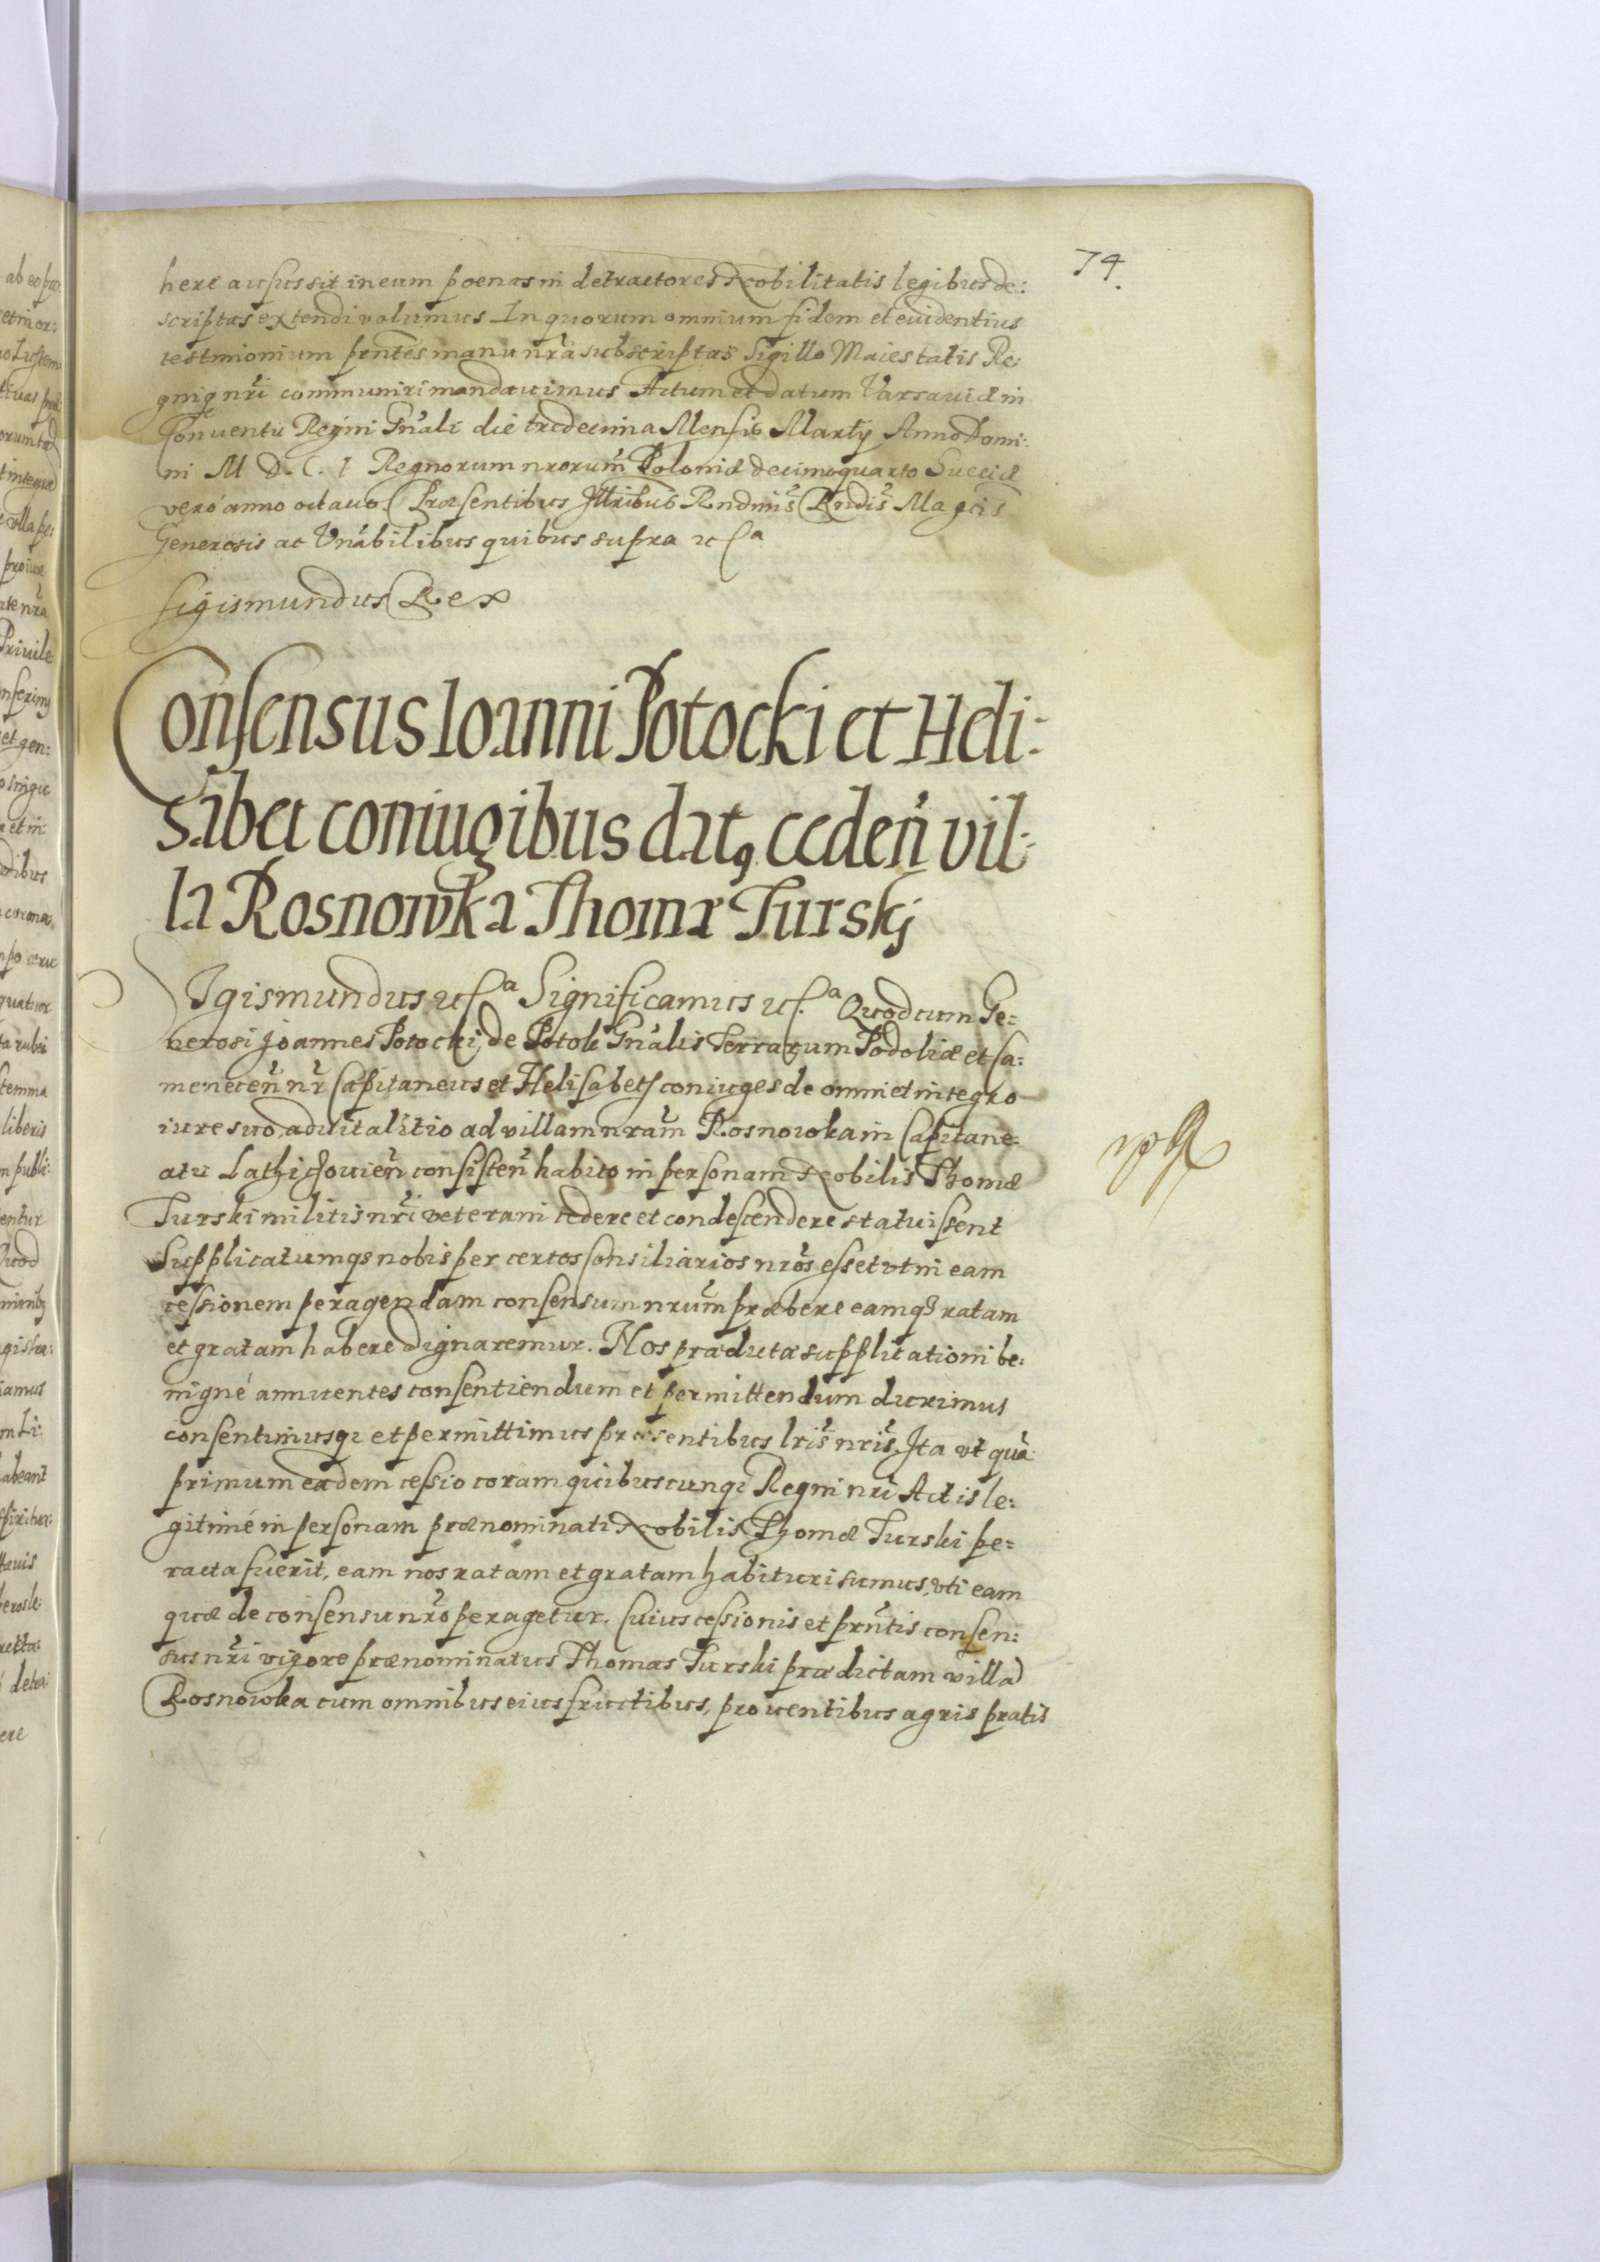 74.
here ausus sit in eum poenas in detractores Nobilitatis legibus de:
scriptas extendi volumus In quorum omnium fidem et euidentius
testimonium pñtes manu nrã subscriptas Sigillo Maiestatis Re:
gniq nrĩ communiri mandauimus Actum et datum Varsauiæ in
Conuentu Regni Gñali die tredecima Mensis Martij Anno Domi:
ni M D. C. I Regnorum nrorum̃ Poloniæ decimoquarto Sueciæ
vero anno octauo Præsentibus Illribus Rndmis̃ Rndis̃ Magcis
Generosis ac Vnãbilibus quibus supra etca
Sigismundus Rex
Consensus Ioanni Potocki et Heli:
sabet coniugibus datq cedeñ vil:
la Rosnowka Thomæ Turskj
Sigismundus etca Significamus etc.a Quod cum Ge=
nerosi Joannes Potocki de Potok Gñalis Terrarum Podoliæ et Ca:
meneceñ nr̃ Capitaneus et Helisabeth coniuges de omni et integro
iure suo aduitalitio ad villam nram̃ Rosnowka in Capitane:
atu Lathichouieñ consisteñ habito in personam Nobilis Thomæ
Turski militis nrĩ veterani cedere et condescendere statuissent
Supplicatumqs nobis per certos Consiliarios nrõs esset vt in eam
cessionem peragendam consensum nrum̃ præbere eamqs ratam
et gratam habere dignaremur. Nos prædictæ supplicationi be:
nigné annuentes consentiendum et permittendum duximus
consentimusqz et permittimus præsentibus lris̃ nris̃. Ita vt quã
primum eadem cessio coram quibuscunqz Regni nrĩ Actis le:
gitimé in personam prænominati Nobilis Thomæ Turski pe=
racta fuerit, eam nos ratam et gratam habituri sumus, vti eam
quæ de consensu nrõ peragetur. Cuius cessionis et prñtis consen:
sus nrĩ vigore prænominatus Thomas Turski prædictam villã
Rosnowka cum omnibus eius fructibus, prouentibus agris pratis